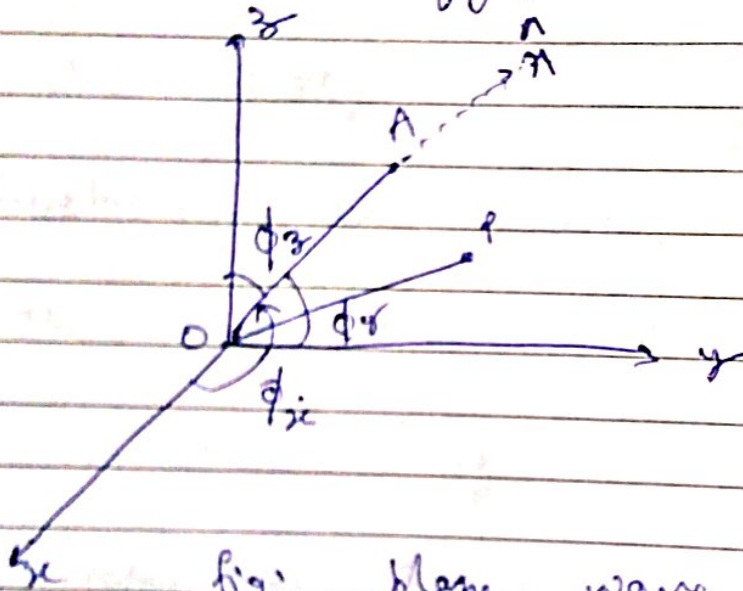 z
n
A
ϕz
P
O
ϕy
y
ϕx
x
fig: plane wave